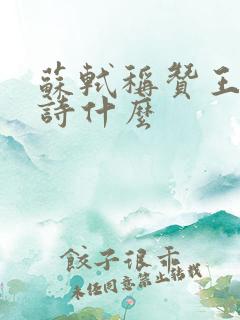 蘇軾稱贊王
詩什麼
餃子很乖
未經同意禁止轉載